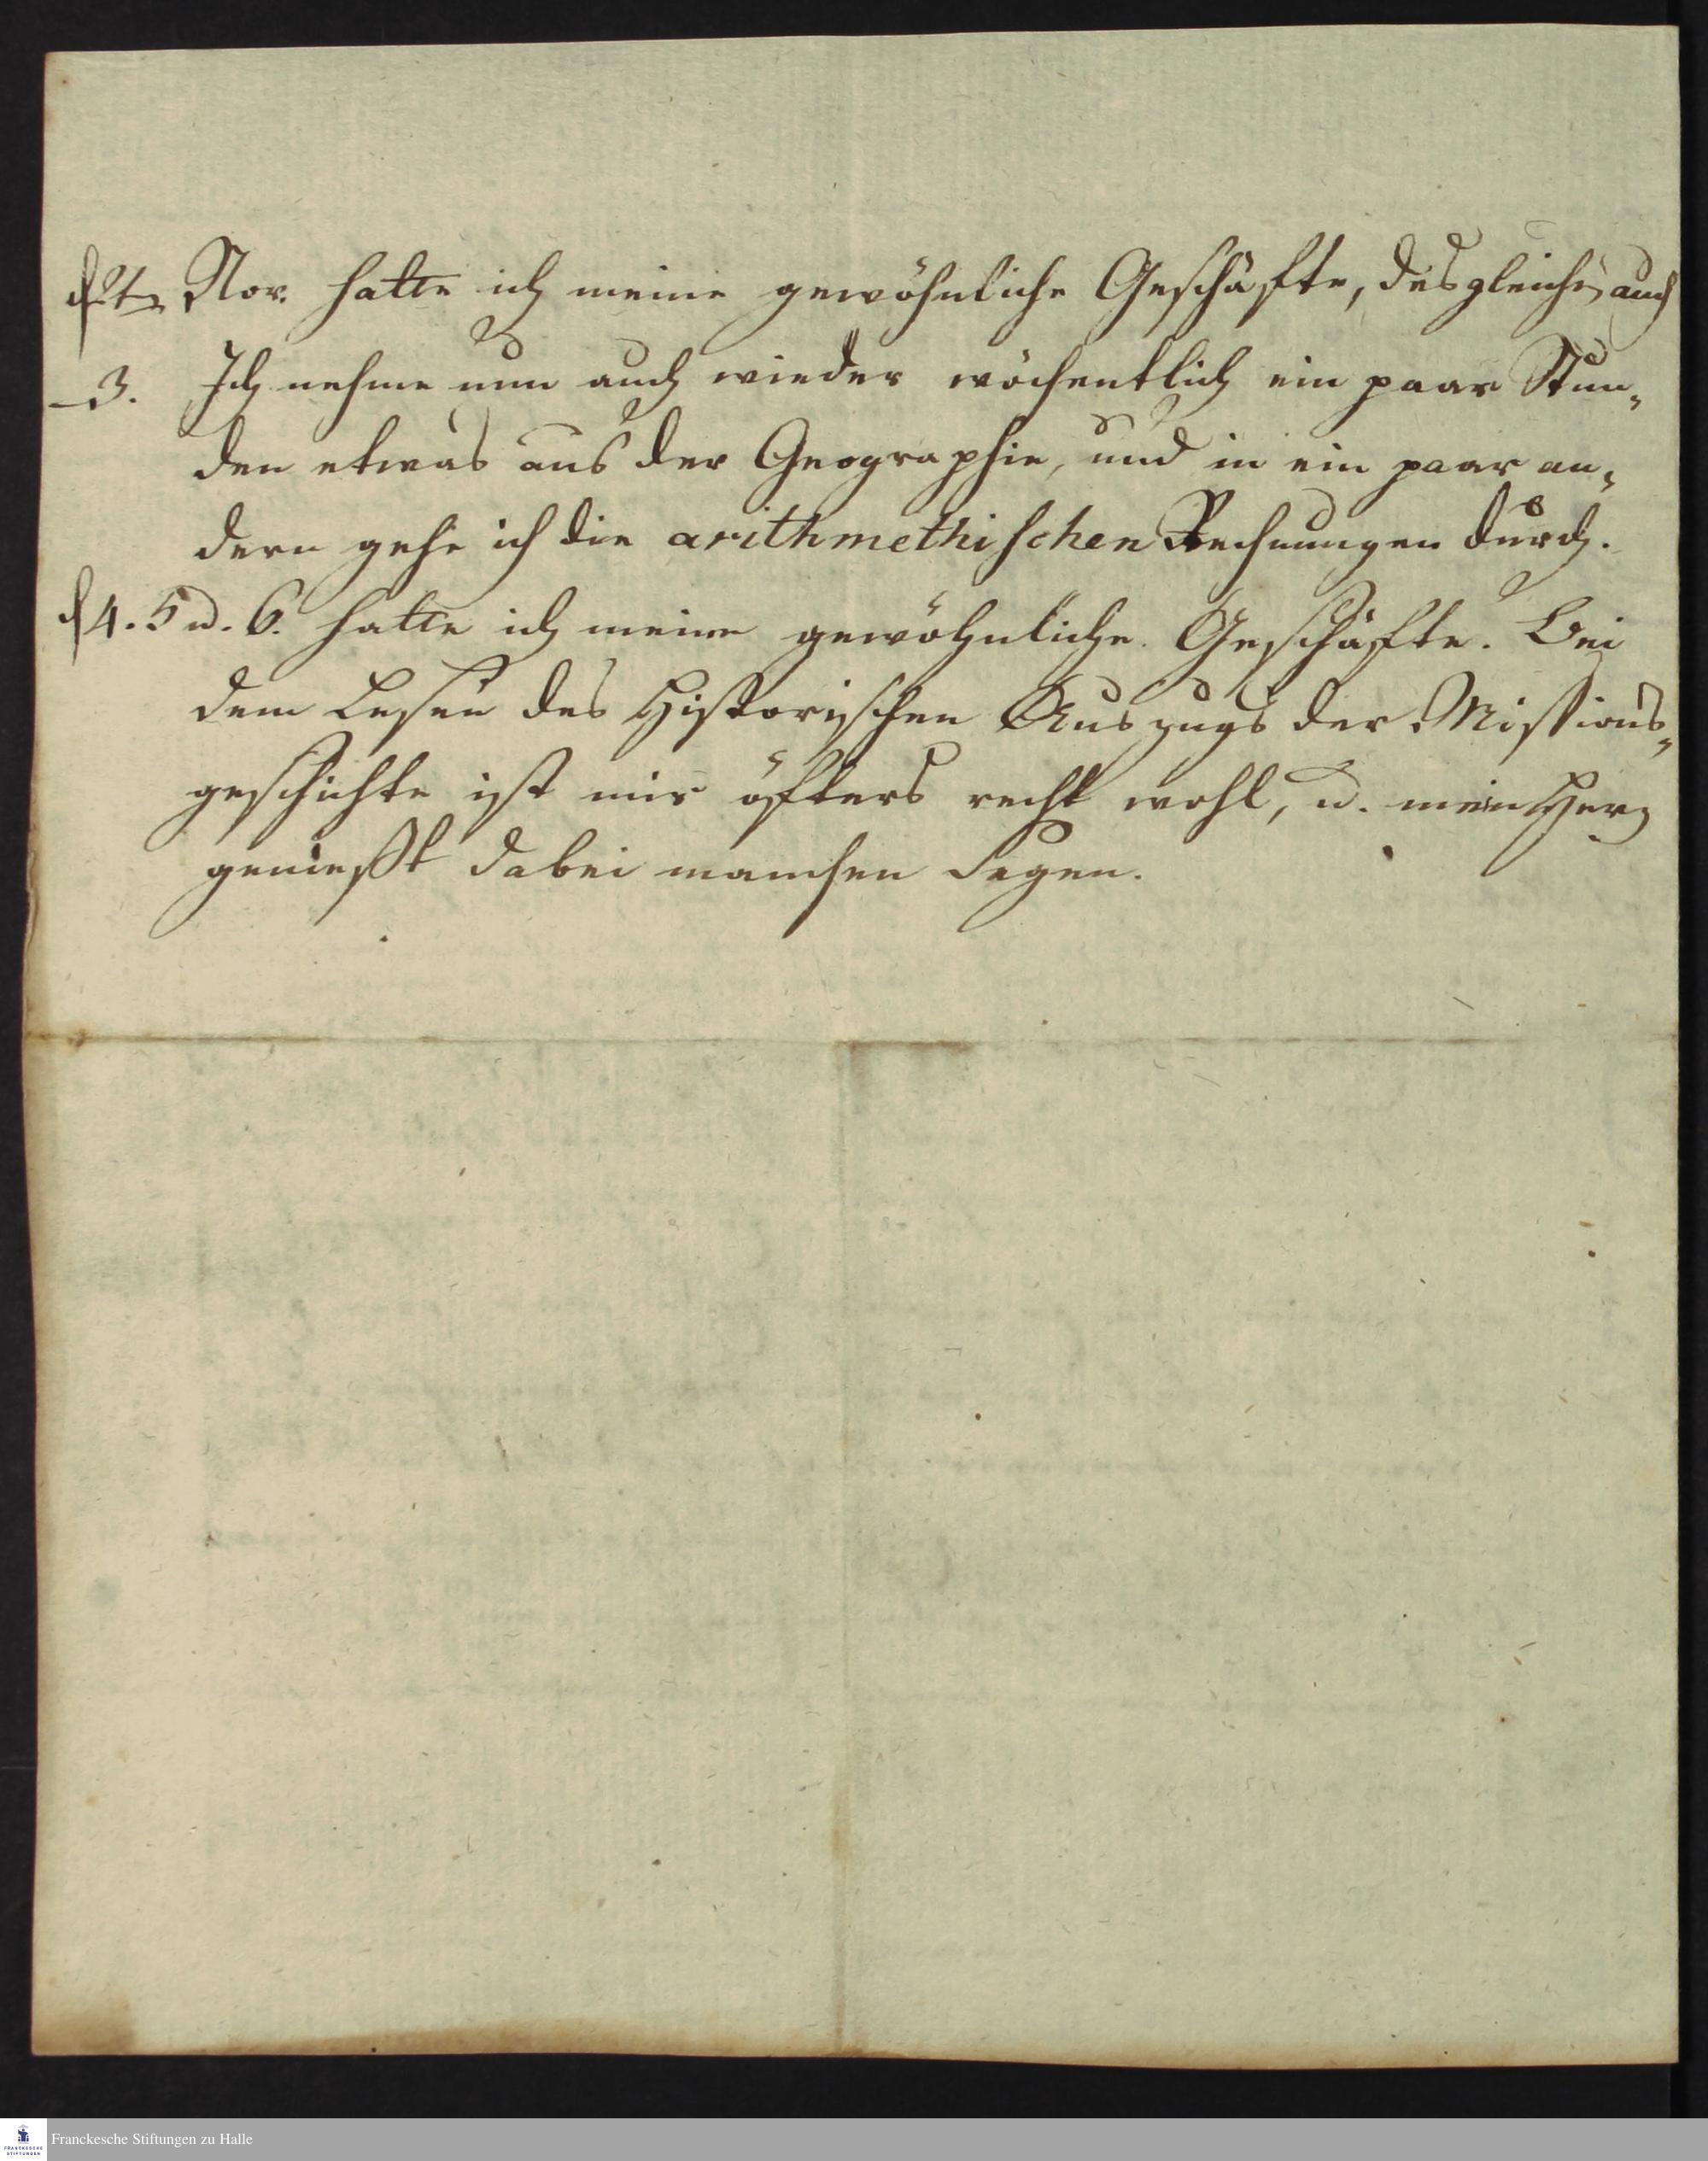 d 2ten Nov. hatte ich meine gewöhnliche Geschäfte, desgleichen auch
– 3. Ich nehme nun auch wieder wöchentlich ein paar Stun-
den etwas aus der Geographie, und in ein paar an-
dern gehe ich die arithmethischen Rechnungen durch.
d 4. 5 u. 6. hatte ich meine gewöhnliche Geschäfte. Bei
dem Lesen des Historischen Auszugs der Missions-
geschichte ist mir öfters recht wohl, u. mein Herz
genießt dabei manchen Segen.
FRANCKESCHE STIFTUNGEN
Franckesche Stiftungen zu Halle